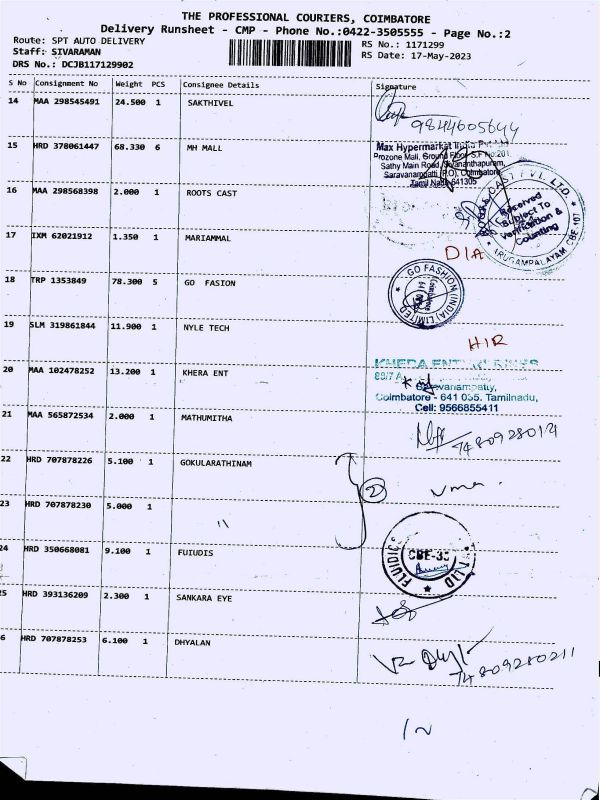 THE PROFESSIONAL COURIERS, COIMBATORE
Delivery Runsheet - CMP - Phone No.:0422-3505555 - Page No.:2
Route: SPT AUTO DELIVERY
Staff: SIVARAMAN
DRS No.: DCJB117129902
RS No.: 1171299
RS Date: 17-May-2023
S No Consignment No Weight PCS Consignee Details Signature
14 MAA 298545491 24.500 1 SAKTHIVEL
9844605644
15 HRD 378061447 68.330 6 MH MALL
Max Hypermarket India Pvt
Prozone Mall, Ground Floor, S.F No:201,
Sathy Main Road, Sivananthapuram,
Saravanampatti (P.O), Coimbatore
Tamil Nadu 641305
16 MAA 298568398 2.000 1 ROOTS CAST
CAST PVT. LTD.
Received
Subject To
Verification &
Counting
ARUGAMPALAYAM CBE-107
17 IXM 62021912 1.350 1 MARIAMMAL
DIA
18 TRP 1353849 78.300 5 GO FASION
GO FASHION (INDIA) LIMITED
19 SLM 319861844 11.900 1 NYLE TECH
HIR
20 MAA 102478252 13.200 1 KHERA ENT
KHERA ENTERPRISES
89/7 A
Saravanampatty,
Coimbatore - 641 035. Tamilnadu,
Cell: 9566855411
21 MAA 565872534 2.000 1 MATHUMITHA
7480928012
22 HRD 707878226 5.100 1 GOKULARATHINAM
2
uma.
23 HRD 707878230 5.000 1 "
24 HRD 350668081 9.100 1 FUIUDIS
CBE-35
25 HRD 393136209 2.300 1 SANKARA EYE
6 HRD 707878253 6.100 1 DHYALAN
74809280211